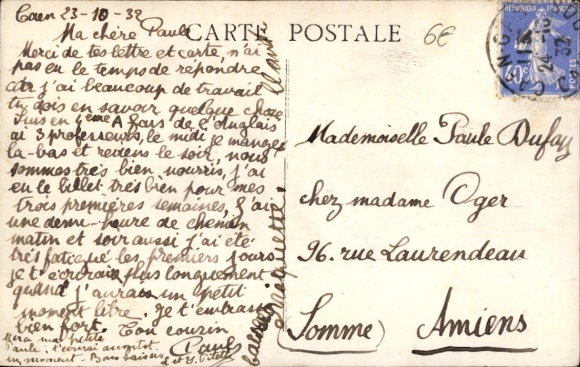 Caen 23-10-32
CARTE POSTALE
6€
Ma chère Paule
Merci de tes lettre et carte, n'ai
pas eu le temps de répondre
car j'ai beaucoup de travail
tu dois en savoir quelque chose
suis en 4ème A fais de l'anglais
ai 3 professeurs, le midi je mange
là-bas et reviens le soir, nous
sommes très bien nourris, j'ai
eu le billet très bien pour mes
trois premières semaines, j'ai
une demi-heure de chemin
matin et soir aussi j'ai été
très fatigué les premiers jours
je t'écrirai plus longuement
quand j'aurai un petit
moment libre. Je t'embrasse
bien fort. Ton cousin
Paul
Merci ma petite
Paule, t'écrirai aussitôt
un moment - Bons baisers
Mademoiselle Paule Dufay
chez madame Oger
96. rue Laurendeau
(Somme) Amiens
REPUBLIQUE FRANÇAISE
POSTES